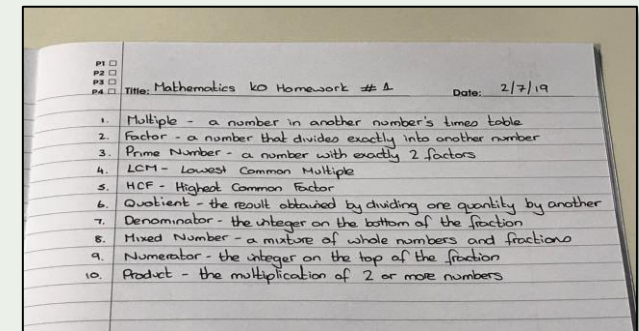 P1 □
P2 □
P3 □
P4 □ Title: Mathematics KO Homework # 1 Date: 2/7/19
1. Multiple - a number in another number's times table
2. Factor - a number that divides exactly into another number
3. Prime Number - a number with exactly 2 factors
4. LCM - Lowest Common Multiple
5. HCF - Highest Common Factor
6. Quotient - the result obtained by dividing one quantity by another
7. Denominator - the integer on the bottom of the fraction
8. Mixed Number - a mixture of whole numbers and fractions
9. Numerator - the integer on the top of the fraction
10. Product - the multiplication of 2 or more numbers